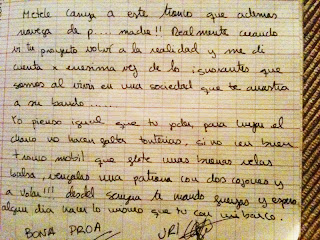 Metele canya a este tronco que ademas
navega de p.... madre!! Realmente cuando
vi tu proyecto volví a la realidad y me di
cuenta x enesima vez de lo ignorantes que
somos al vivir en una sociedad que te arrastra
a su bando......
Yo pienso igual que tu joder, para llegar el
no hacen falta tonterias, si no un buen
tronco mobil que flote unas buenas velas
balsa, vengalas una patrona con dos cojones y
a volar!!! desdel te mando y espero
algun dia hacer lo mismo que tu con mi barco.
BONA PROA URI